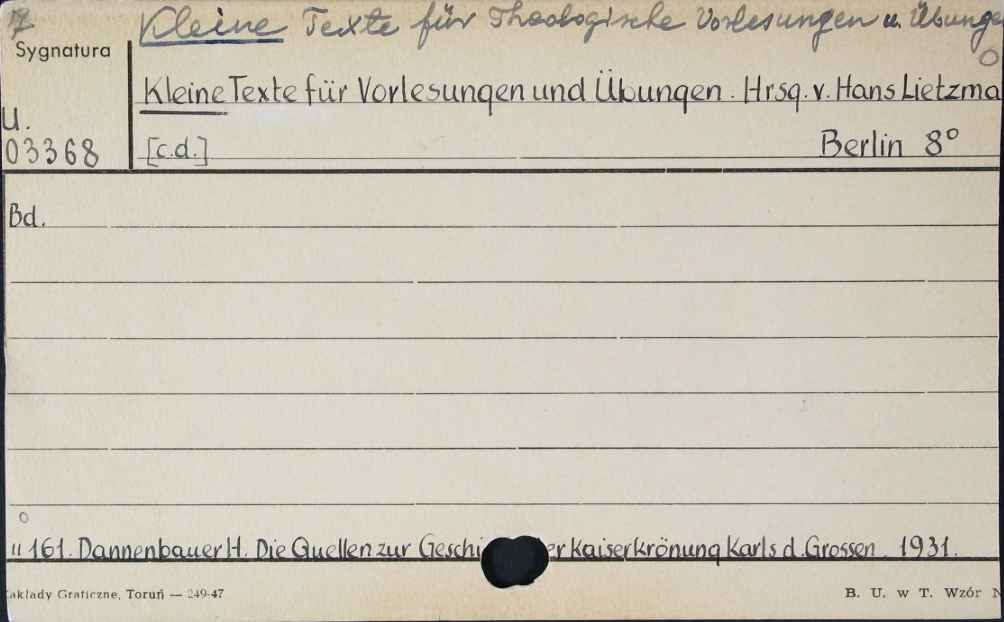 Kleine Texte für Theologische Vorlesungen u. Übunge
Sygnatura
Kleine Texte für Vorlesungen und Übungen. Hrsg. v. Hans Lietzma
U.
03368
[c.d.] Berlin 8°
Bd.
" 161. Dannenbauer H. Die Quellen zur Geschi er Kaiserkrönung Karls d. Grossen. 1931.
akłady Graficzne, Toruń — 249-47
B. U. w T. Wzór N